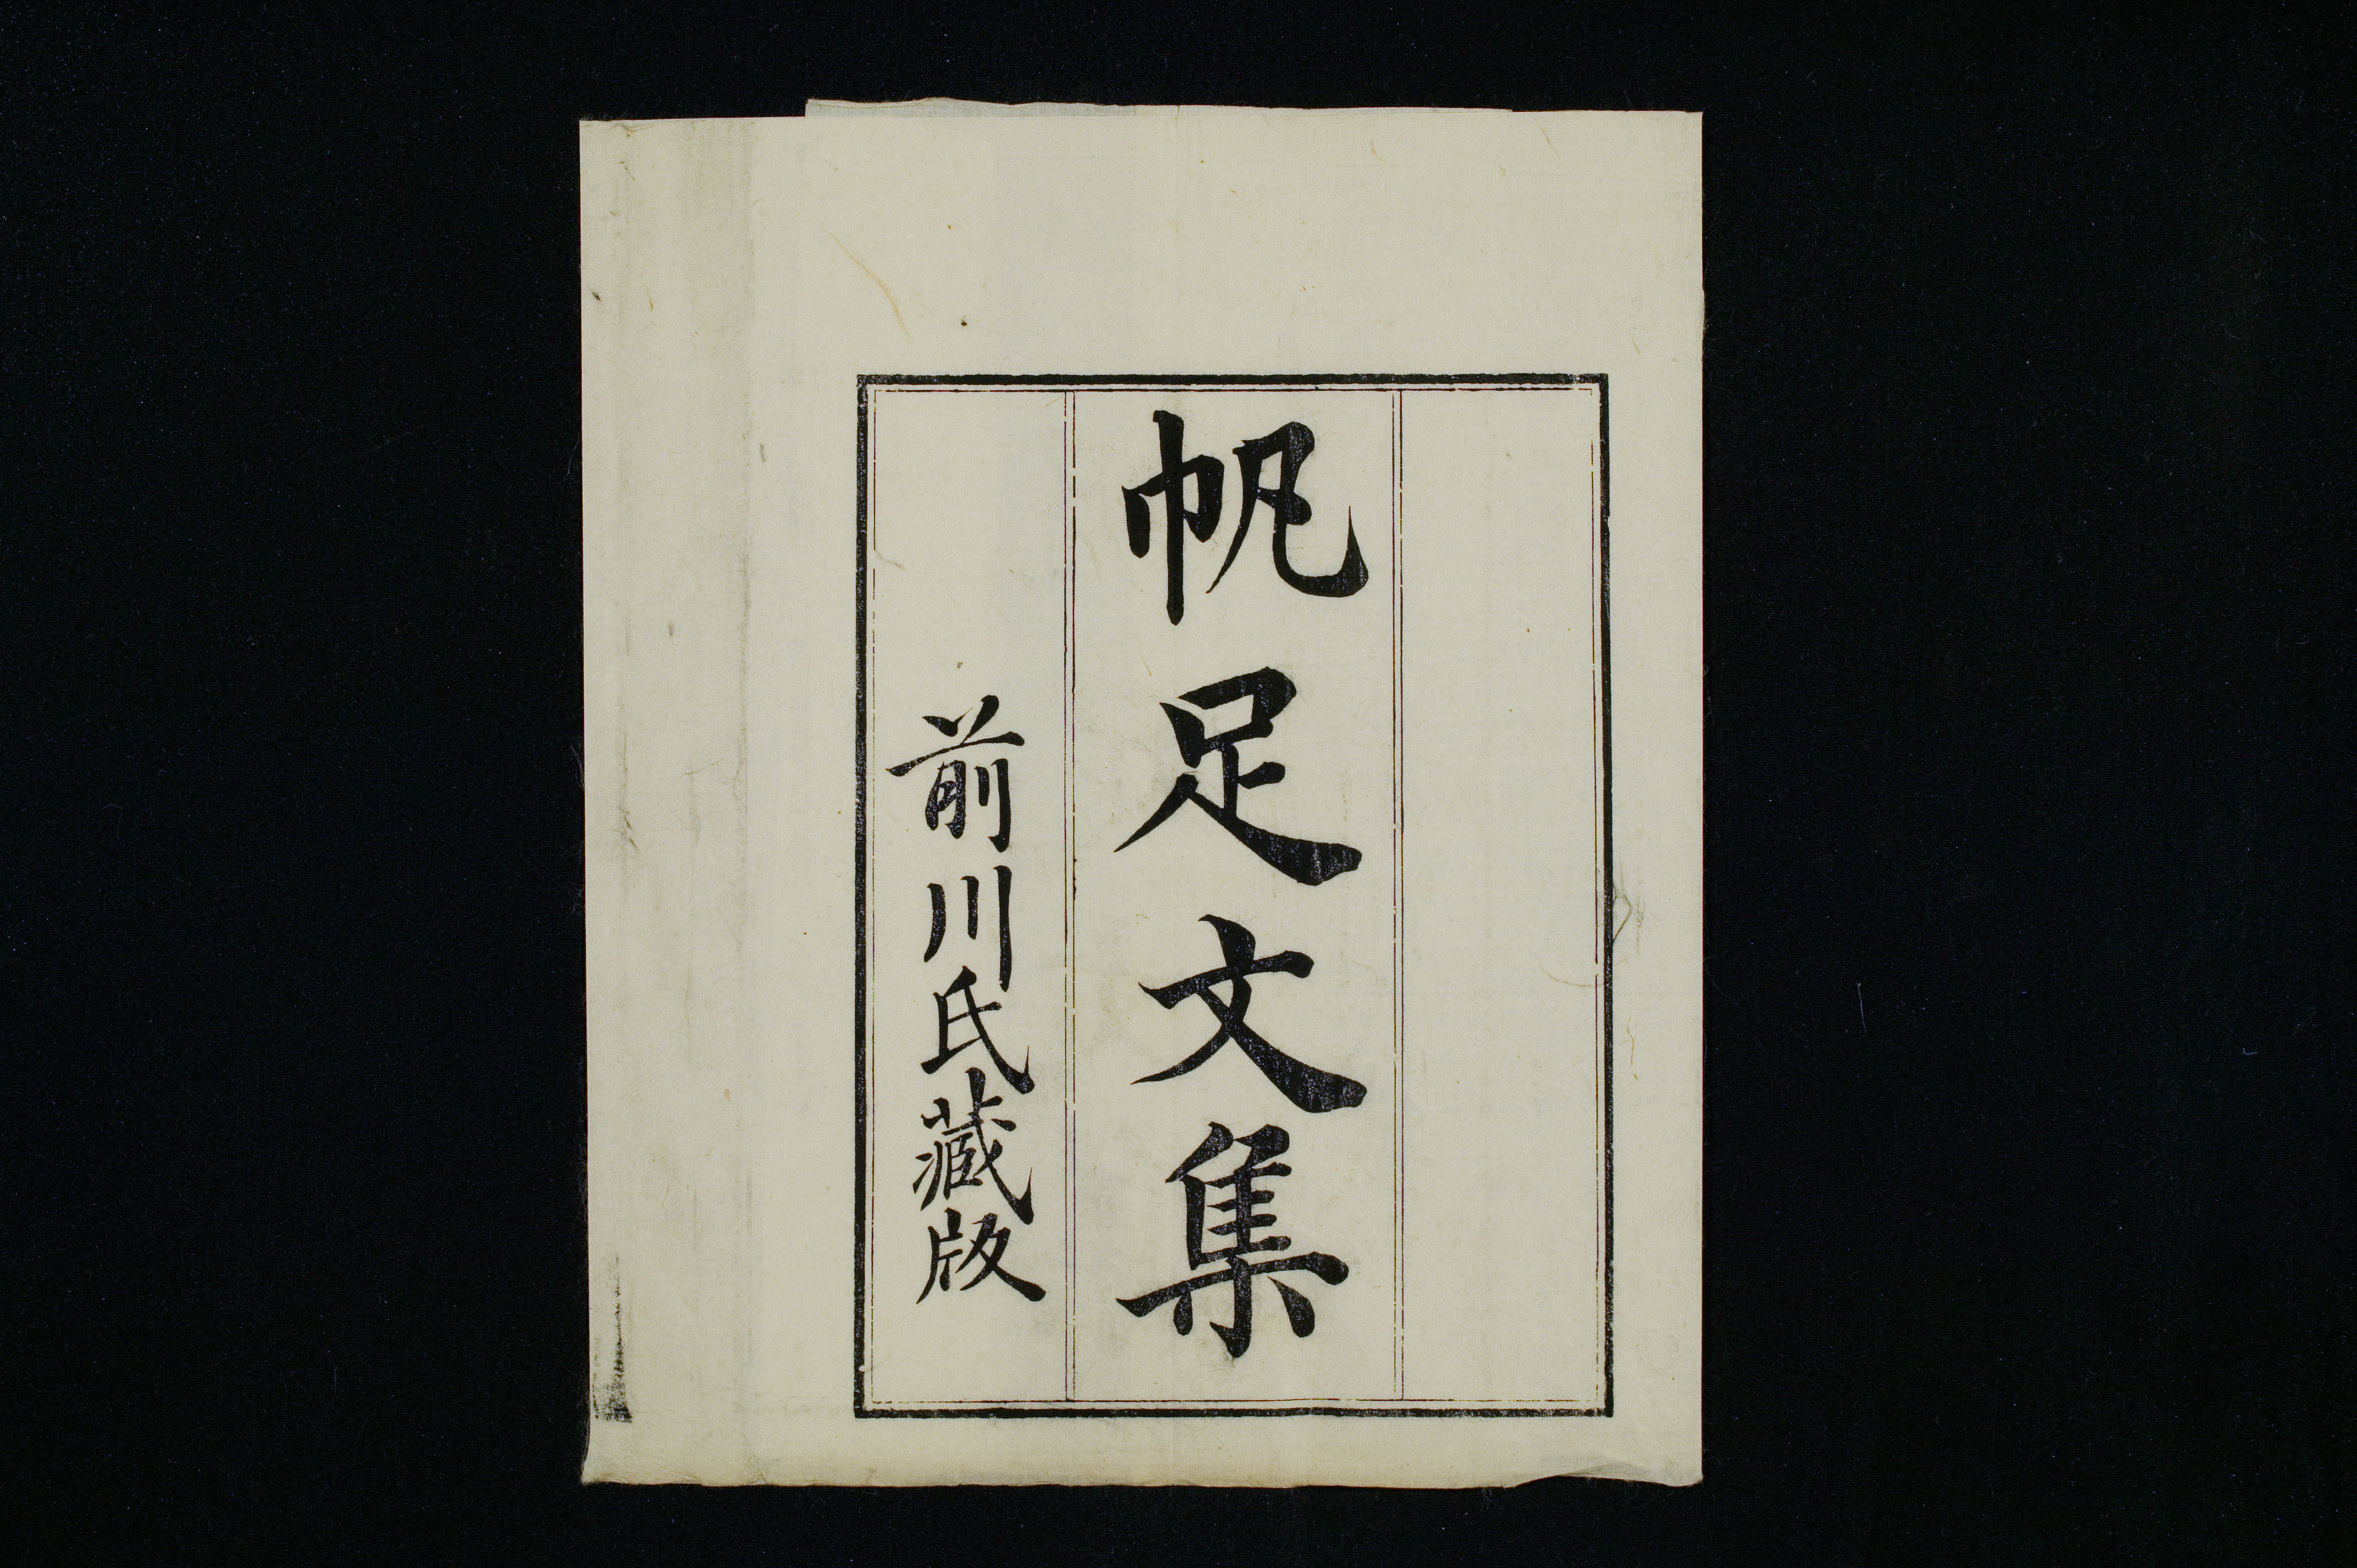 帆足文集
前川氏藏版